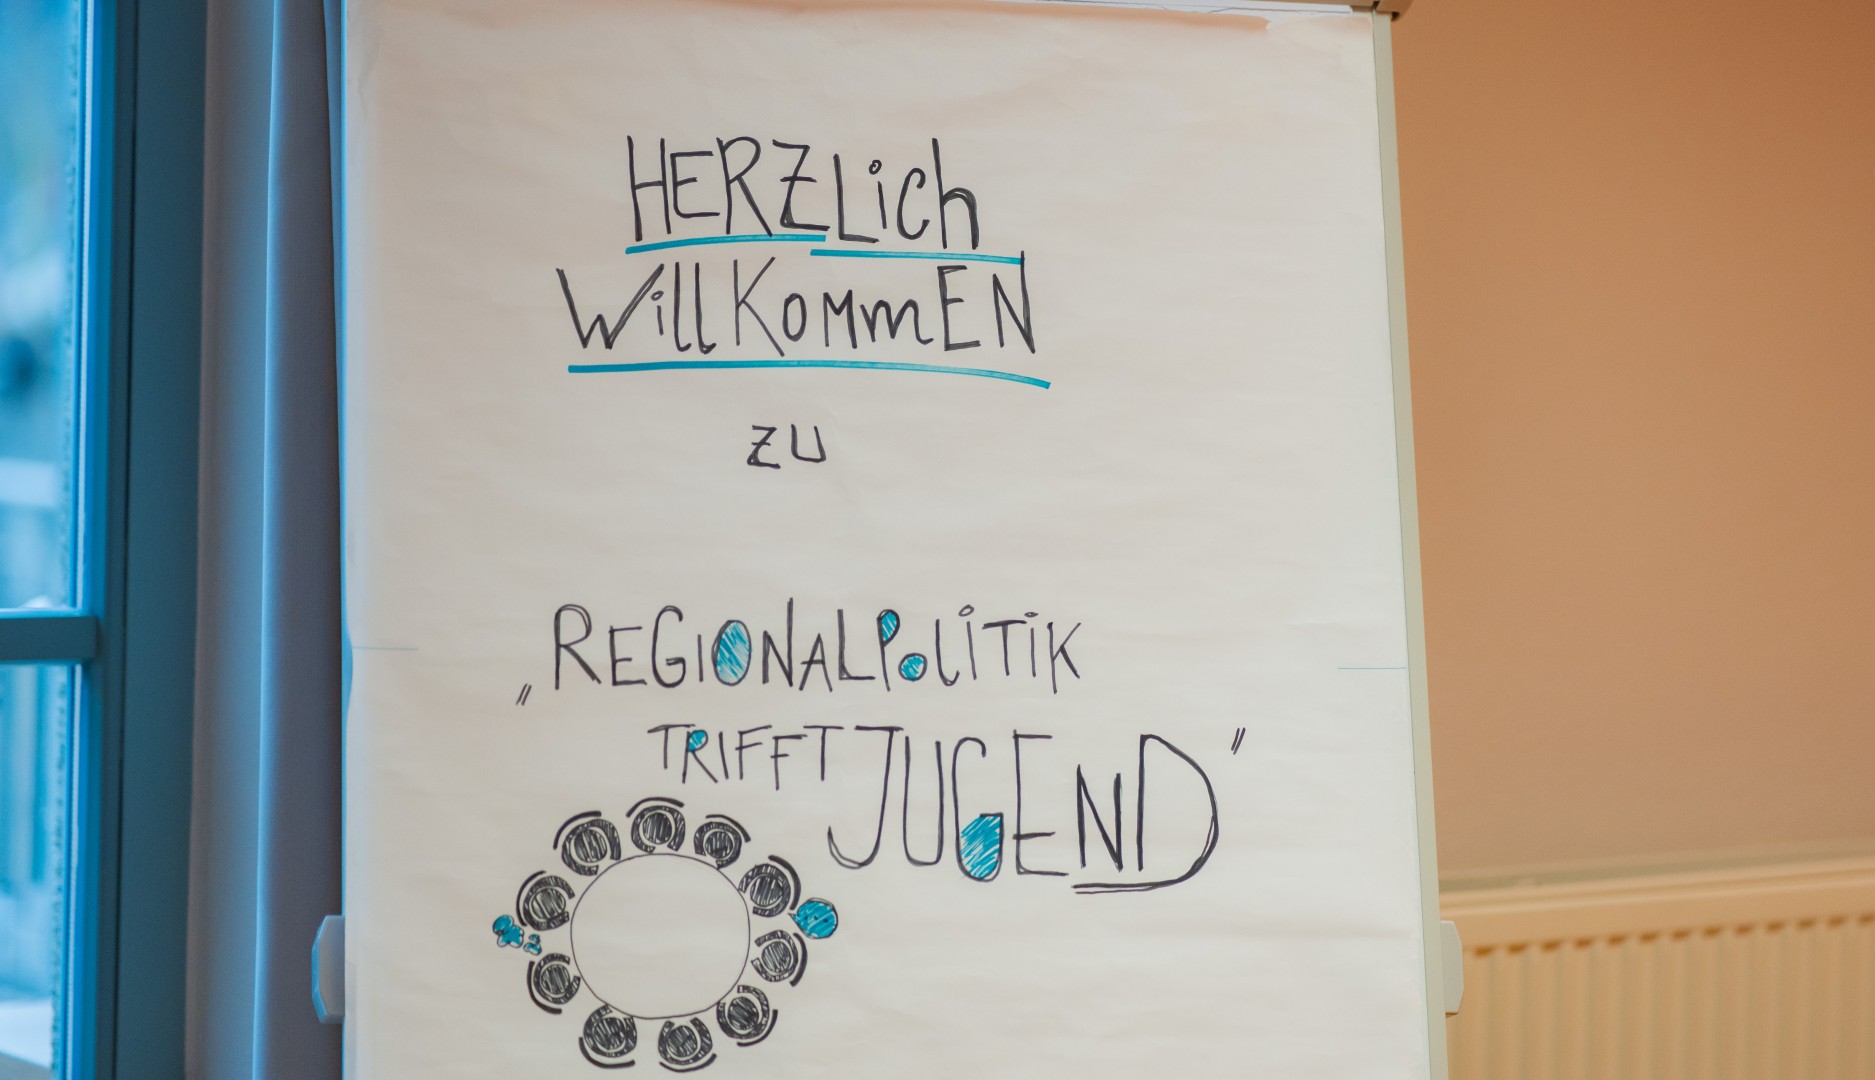 HERZLich
WillKommEN
ZU
„REGIONALPOLITIK
TRIFFT JUGEND"